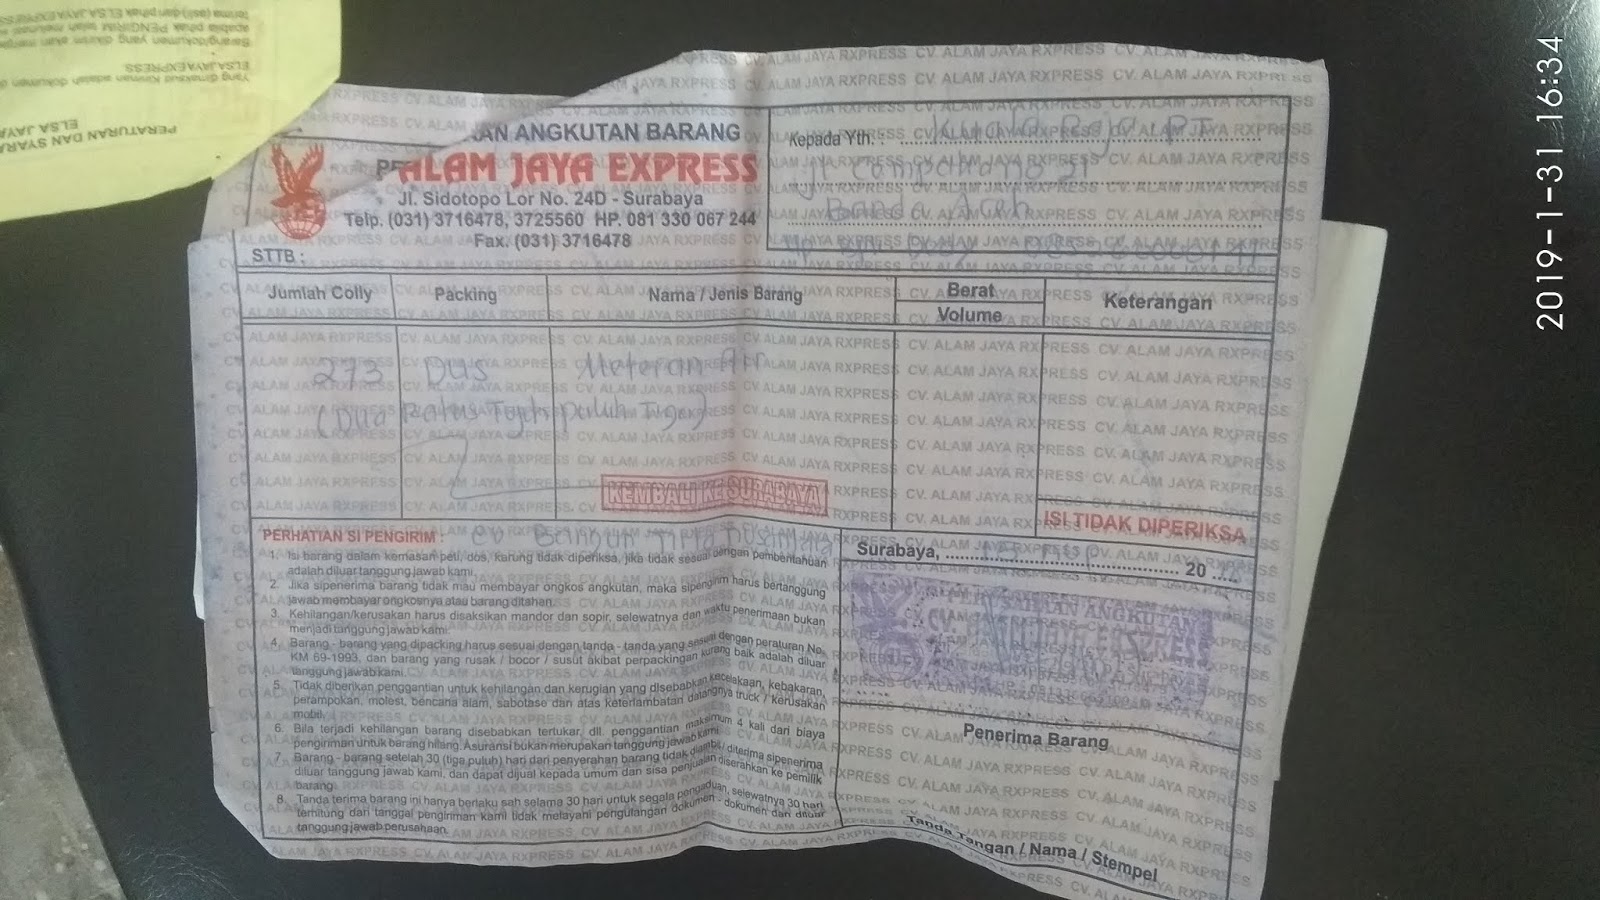 PERATURAN DAN SYARA
ELSA JAYA
Yang dimaksud Kiriman adalah dokumen
ELSA JAYA EXPRESS
Barang/dokumen yang dikirim akan
apabila pihak PENGIRIM telah
terima (asli) dan pihak ELSA JAYA EXPRESS
2019-1-31 16:34
AN ANGKUTAN BARANG
ALAM JAYA EXPRESS
Jl. Sidotopo Lor No. 24D - Surabaya
Telp. (031) 3716478, 3725560 HP. 081 330 067 244
Fax. (031) 3716478
STTB :
Kepada Yth. : Kuala Raja PT
Banda Aceh
Jumlah Colly Packing Nama / Jenis Barang Berat Volume Keterangan
273 Dus Meteran Air
(Dua Ratus Tujuh puluh Tiga)
KEMBALI KE SURABAYA
ISI TIDAK DIPERIKSA
PERHATIAN SI PENGIRIM : CV Bangun Tirta Nusantara
1. Isi barang dalam kemasan peti, dos, karung tidak diperiksa, jika tidak sesuai dengan pemberitahuan
adalah diluar tanggung jawab kami.
2. Jika sipenerima barang tidak mau membayar ongkos angkutan, maka sipengirim harus bertanggung
jawab membayar ongkosnya atau barang ditahan.
3. Kehilangan/kerusakan harus disaksikan mandor dan sopir, selewatnya dan waktu penerimaan bukan
menjadi tanggung jawab kami.
4. Barang - barang yang dipacking harus sesuai dengan tanda - tanda yang sesuai dengan peraturan No.
KM 69-1993, dan barang yang rusak / bocor / susut akibat perpackingan kurang baik adalah diluar
tanggung jawab kami.
5. Tidak diberikan penggantian untuk kehilangan dan kerugian yang disebabkan kecelakaan, kebakaran,
perampokan, molest, bencana alam, sabotase dan atas keterlambatan datangnya truck / kerusakan
mobil.
6. Bila terjadi kehilangan barang disebabkan tertukar, dll. penggantian maksimum 4 kali dari biaya
pengiriman untuk barang hilang. Asuransi bukan merupakan tanggung jawab kami.
7. Barang - barang setelah 30 (tiga puluh) hari dari penyerahan barang tidak diambil / diterima sipenerima
diluar tanggung jawab kami, dan dapat dijual kepada umum dan sisa penjualan diserahkan ke pemilik
barang.
8. Tanda terima barang ini hanya berlaku sah selama 30 hari untuk segala pengaduan, selewatnya 30 hari
terhitung dari tanggal pengiriman kami tidak melayani pengulangan dokumen - dokumen dan diluar
tanggung jawab perusahaan.
Surabaya, 20
Penerima Barang
Tanda Tangan / Nama / Stempel
CV. ALAM JAYA RXPRESS